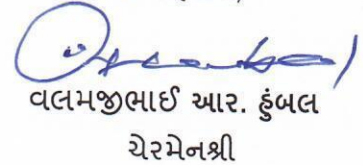 વલમજીભાઈ આર. હુંબલ
ચેરમેનશ્રી